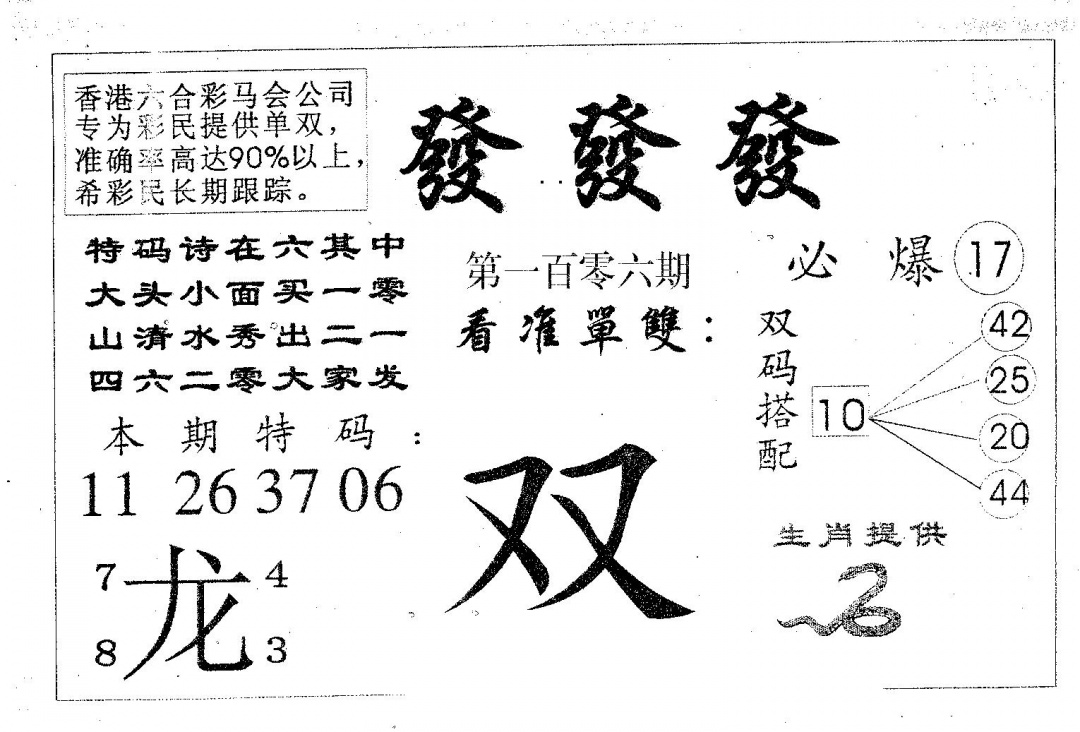 香港六合彩马会公司
专为彩民提供单双，
准确率高达90%以上，
希彩民长期跟踪。
發發發
特码诗在六其中
大头小面买一零
山清水秀出二一
四六二零大家发
第一百零六期
看准單雙：
双
必爆 17
双码搭配
10
42
25
20
44
本期特码：
11 26 37 06
7 4
龙
8 3
生肖提供